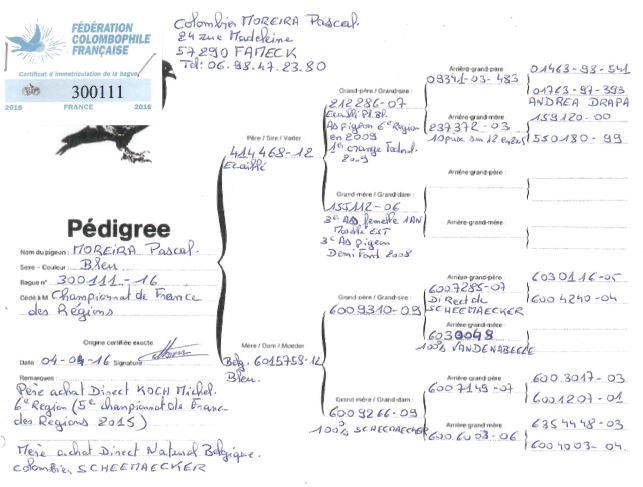 FÉDÉRATION
COLOMBOPHILE
FRANÇAISE
Certificat d'immatriculation de la bague
300111
2016 FRANCE 2016
Colombier MOREIRA Pascal.
24 rue Madeleine
57290 FAMECK
Tel: 06.98.47.23.80
Pédigree
Nom du pigeon: MOREIRA Pascal.
Sexe - Couleur: Bleu.
Bague n° 300111.-16
Cédé à M. Championnat de France
des Régions
Origine certifiée exacte
Date 04-04-16 Signature
Remarques:
Père achat Direct KOCH Michel.
6e Region (5e championnat de France
des Regions 2015)
Mère achat Direct Natural Belgique.
colombier SCHEEMAECKER
Père / Sire / Vader
414468-12
Ecaillé
Mère / Dam / Moeder
Belg. 6015758-12
Bleu.
Grand-père / Grand-sire:
212286-07
Ecaillé Pl.Bl.
As pigeon 6e Region
en 2009
1er orange Federal.
2009
Grand mère / Grand-dam:
155112-06
3e AS femelle 1AN
3e AS pigeon
Demi Fond 2008
Grand-père / Grand-sire:
6009310-09
Grand mère / Grand-dam:
6009266-09
100% SCHEEMAECKER
Arrière-grand-père
09341-03-483
Arrière-grand-mère
237372-03
Arrière-grand-père:
Arrière-grand-mère:
Arrière-grand-père
6007285-07
Direct de
SCHEEMAECKER
Arrière-grand-mère
6030048
100% VANDENABEELE
Arrière-grand-père
6007149-07
Arrière-grand-mère
6006003-06
01463-98-541
01763-97-393
ANDREA DRAPA
159120-00
550180-99
6030116-05
6004240-04
6003017-03
6001207-01
6354448-03
6004003-04.